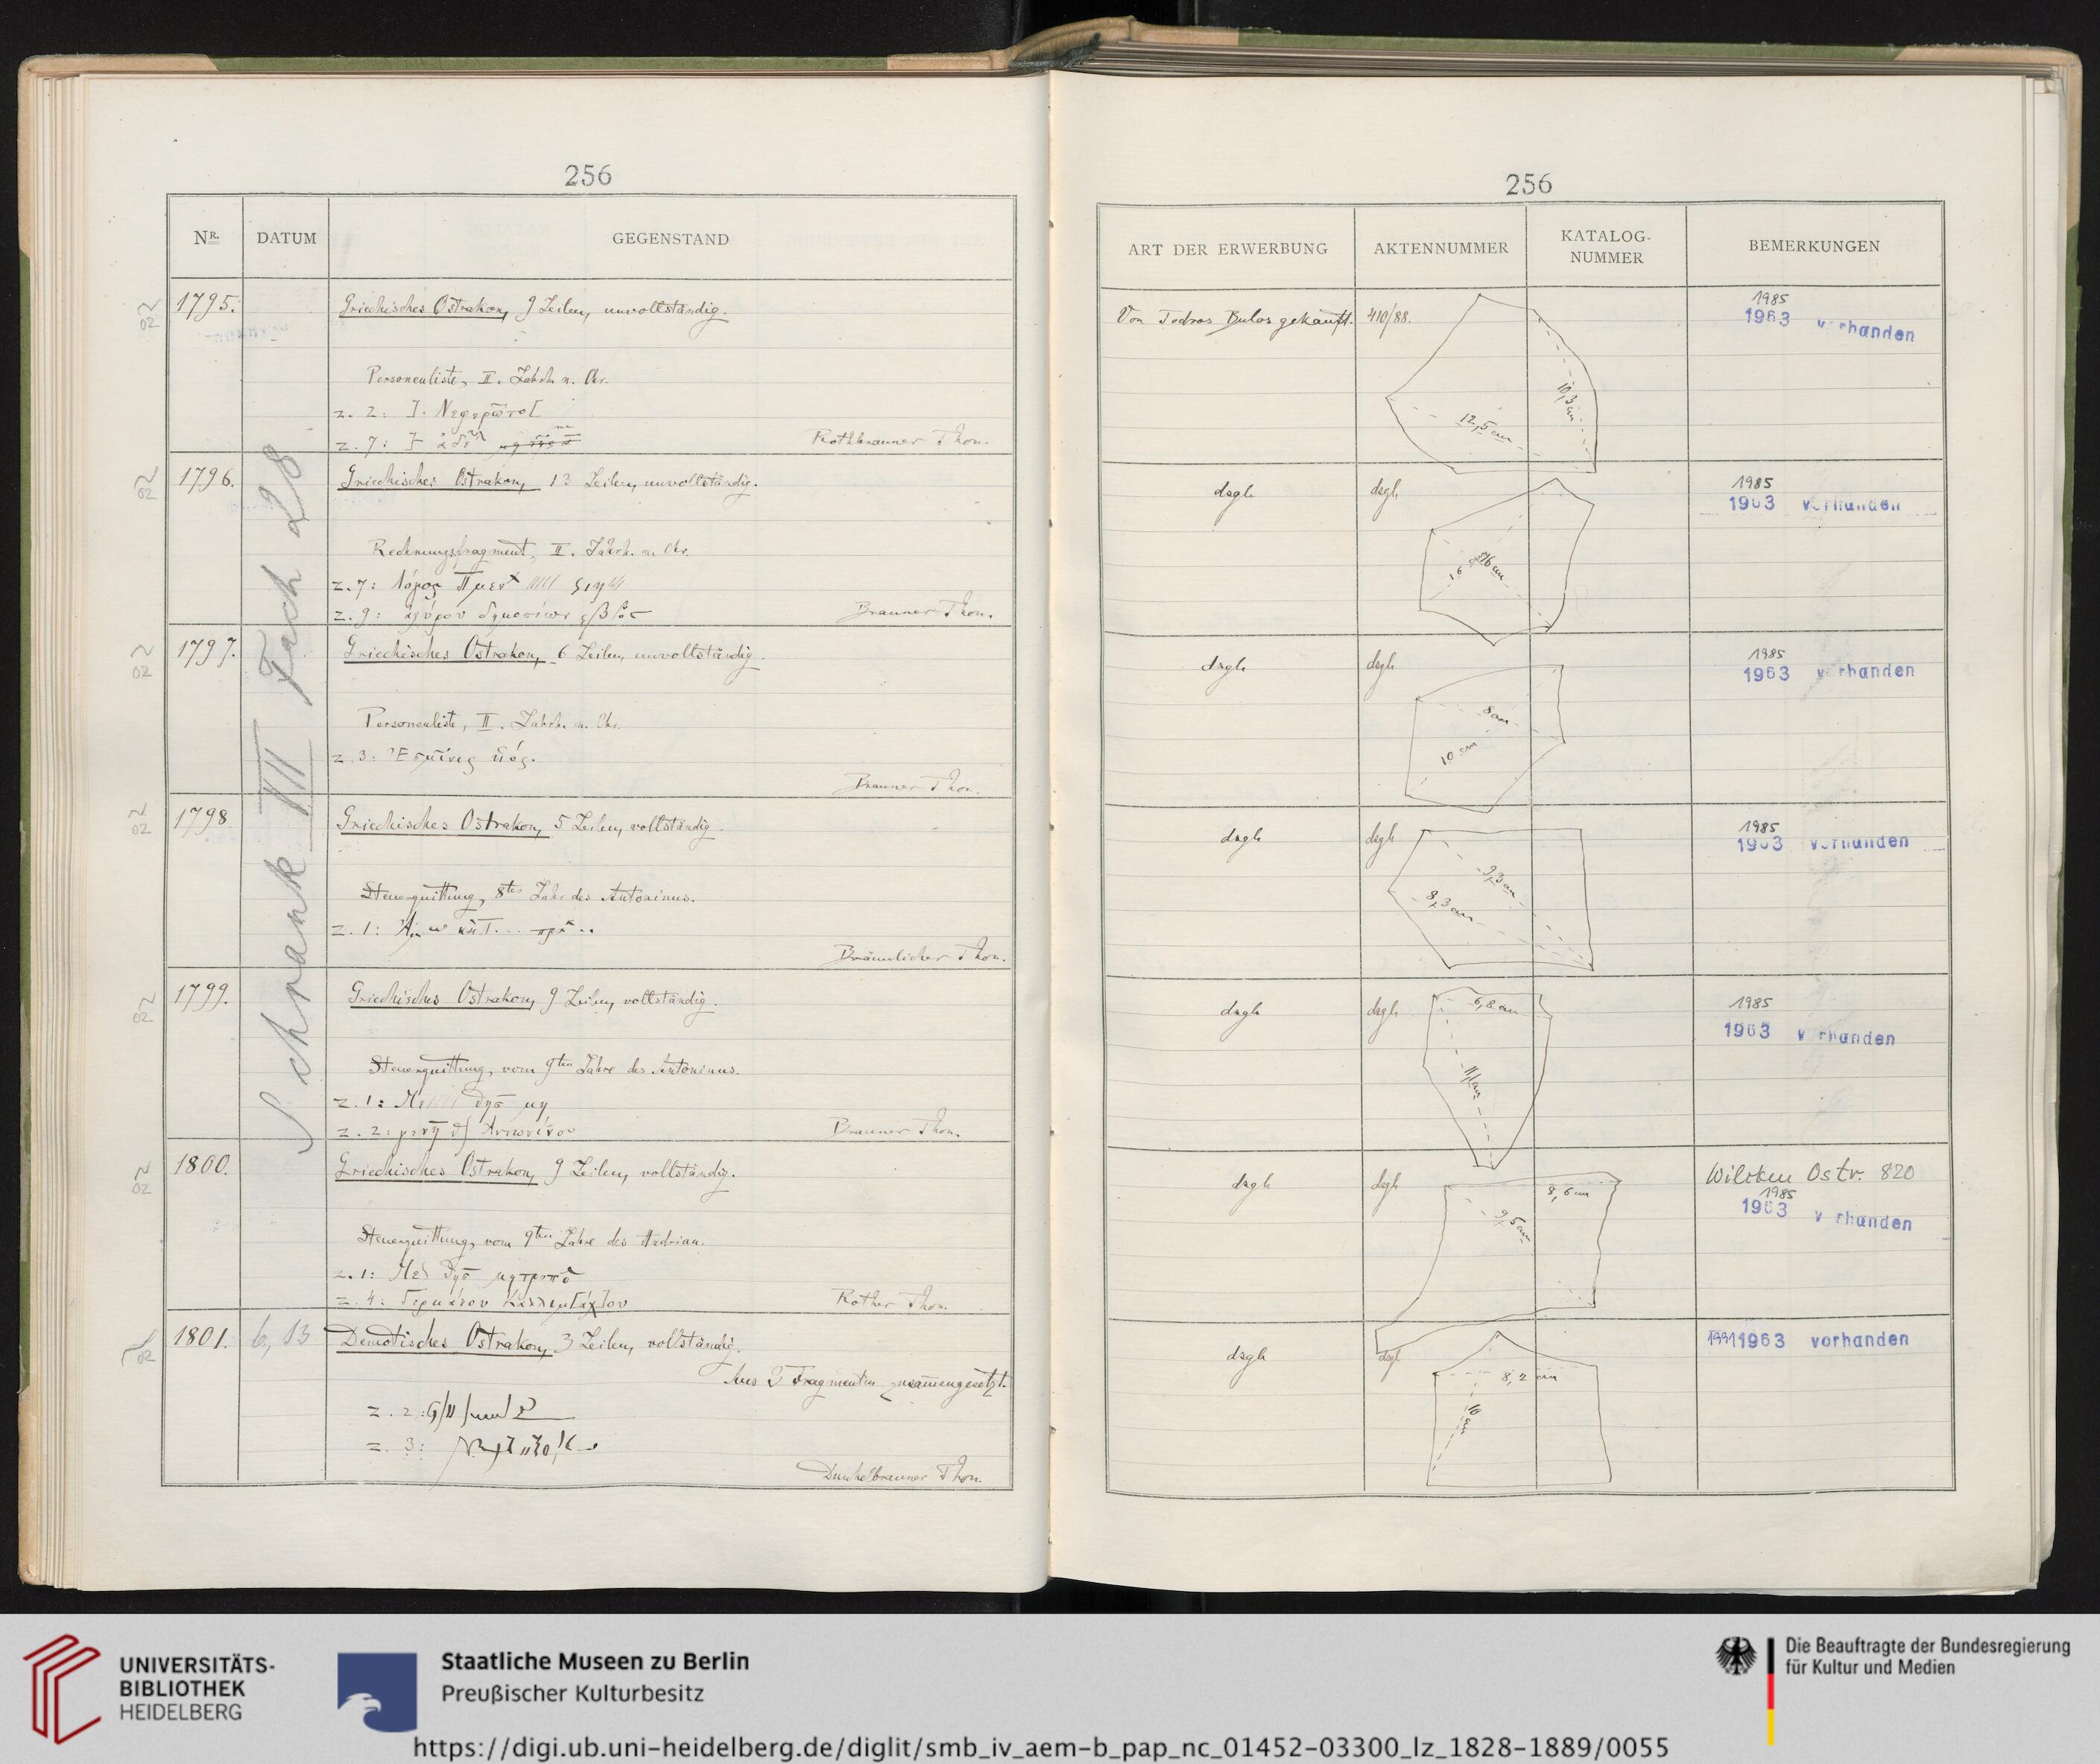 256
Nr. DATUM GEGENSTAND
1795. Griechisches Ostrakon, 9 Zeilen, unvollständig.
Personenliste, II. Jahrh. n. Chr.
z. 2: ]. Νεφερῶτο[
z. 7:
Rothbrauner Thon.
1796. Griechisches Ostrakon, 13 Zeilen, unvollständig.
Rechnungsfragment, II. Jahrh. n. Chr.
z. 7: λόγος
z. 9: ἀχύρου δημοσίων
Brauner Thon.
1797. Griechisches Ostrakon, 6 Zeilen, unvollständig.
Personenliste, II. Jahrh. n. Chr.
z. 3:
Brauner Thon.
1798. Griechisches Ostrakon, 5 Zeilen, vollständig.
Steuerquittung, 8tes Jahr des Antoninus.
z. 1:
Bräunlicher Thon.
1799. Griechisches Ostrakon, 9 Zeilen, vollständig.
Steuerquittung, vom 9ten Jahre des Antoninus.
z. 1:
z. 2: Αντωνίνου
Brauner Thon.
1800. Griechisches Ostrakon, 9 Zeilen, vollständig.
Steuerquittung, vom 9ten Jahre des Hadrian.
z. 1:
z. 4:
Rother Thon.
1801. 6, 13 Demotisches Ostrakon, 3 Zeilen, vollständig.
Aus 2 Fragmenten zusammengesetzt.
z. 2:
z. 3:
Dunkelbrauner Thon.
Schrank III Fach 28
256
ART DER ERWERBUNG AKTENNUMMER KATALOG-NUMMER BEMERKUNGEN
1985
Von Todros Bulos gekauft. 410/88. 1963 vorhanden
10,3 cm
12,5 cm
1985
dsgl. dsgl. 1963 vorhanden
16 cm
1985
dsgl. dsgl. 1963 vorhanden
8 cm
10 cm
1985
dsgl. dsgl. 1963 vorhanden
9,3 cm
8,3 cm
1985
dsgl. dsgl. 6,8 cm 1963 vorhanden
11 cm
Wilcken Ostr. 820
dsgl. dsgl. 8,6 cm 1985
1963 vorhanden
9,5 cm
1991 1963 vorhanden
dsgl. dsgl.
8,2 cm
10 cm
UNIVERSITÄTS-
BIBLIOTHEK
HEIDELBERG
Staatliche Museen zu Berlin
Preußischer Kulturbesitz
Die Beauftragte der Bundesregierung
für Kultur und Medien
https://digi.ub.uni-heidelberg.de/diglit/smb_iv_aem-b_pap_nc_01452-03300_lz_1828-1889/0055